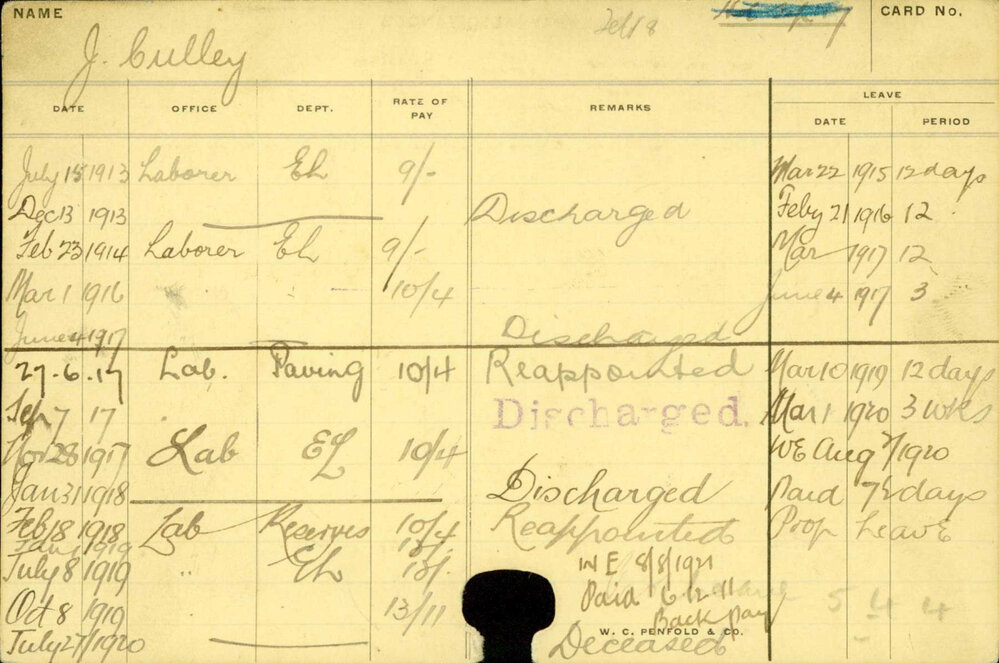 NAME
CARD No.
J. Culley
DATE OFFICE DEPT. RATE OF PAY REMARKS LEAVE
DATE PERIOD
July 15 1913 Laborer EL 9/- Mar 22 1915 12 days
Dec 13 1913 Discharged Feby 21 1916 12
Feb 23 1914 Laborer EL 9/- Mar 1917 12
Mar 1 1916 10/4 June 4 1917 3
June 4 1917 Discharged
27.6.17 Lab. Paving 10/4 Reappointed Mar 10 1919 12 days
Sep 7 17 Discharged. Mar 1 1920 3 wks
Nov 28 1917 Lab EL 10/4 WE Aug 7/1920
Jan 31 1918 Discharged Paid 7½ days
Feb 18 1918 Lab Reserves 10/4 Reappointed Prop Leave
Jan 1 1919
July 8 1919 " EL WE 8/8/1921
Oct 8 1919 13/11 Paid 6.12.11 5 4 4
Back Pay
W. C. PENFOLD & CO.
July 27/1920 Deceased